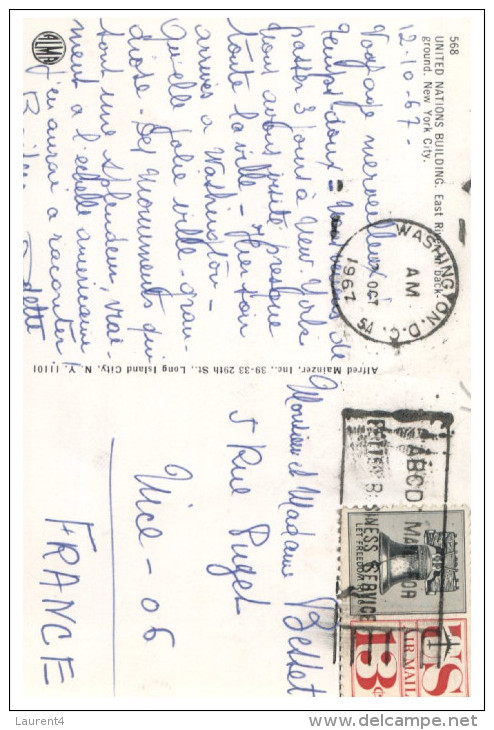 568
UNITED NATIONS BUILDING. East River in back-
ground. New York City.
12.10.67-
Voyage merveilleux
temps doux - Nous venons de
passer 3 jours à New-York
nous avons visité presque
toute la ville - Hier soir
arrivés à Washington -
Quelle jolie ville - gran-
diose - Des monuments qui
sont une splendeur, vrai-
ment à l'échelle américaine
j'en aurai à raconter!
Odette
ALMA
WASHINGTON, D.C.
AM
OCT
1967
Alfred Mainzer, Inc., 39-33 29th St., Long Island City, N. Y. 11101
ABCD MAIL FOR
BETTER BUSINESS SERVICE
LET FREEDOM RING
US
AIR MAIL
13c
Monsieur et Madame Besset
5 Rue Puget
Nice - 06
FRANCE
Laurent4
www.delcampe.net